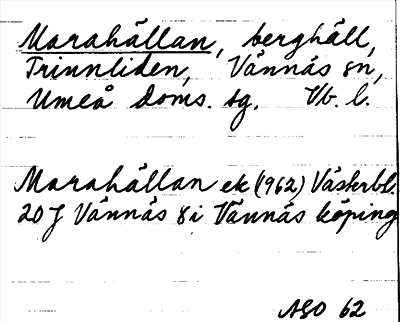 Marahällan, berghäll,
Trinnliden, Vännäs sn,
Umeå doms. sg. Vb. l.
Marahällan ek (1962) Västerbl.
20 J Vännäs 8 i Vännäs köping
ASO 62